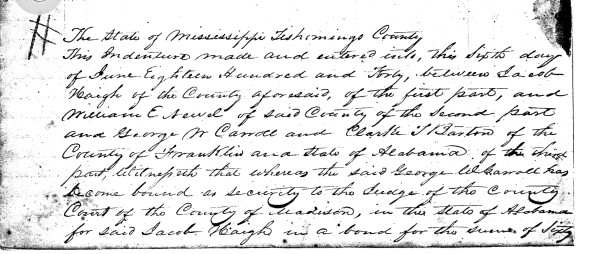 The State of Mississippi Tishomingo County
This Indenture made and entered into, this Sixth day
of June Eighteen Hundred and Forty, between Jacob
Haigh of the County aforesaid, of the first part, and
William E Newel of said County of the second part
and George W Carroll and Clarke T Barton of the
County of Franklin and State of Alabama of the third
part, Witnesseth that whereas the said George W Carroll has
become bound as security to the Judge of the County
Court of the County of Madison, in the State of Alabama
for said Jacob Haigh in a bond for the sume of Sixty